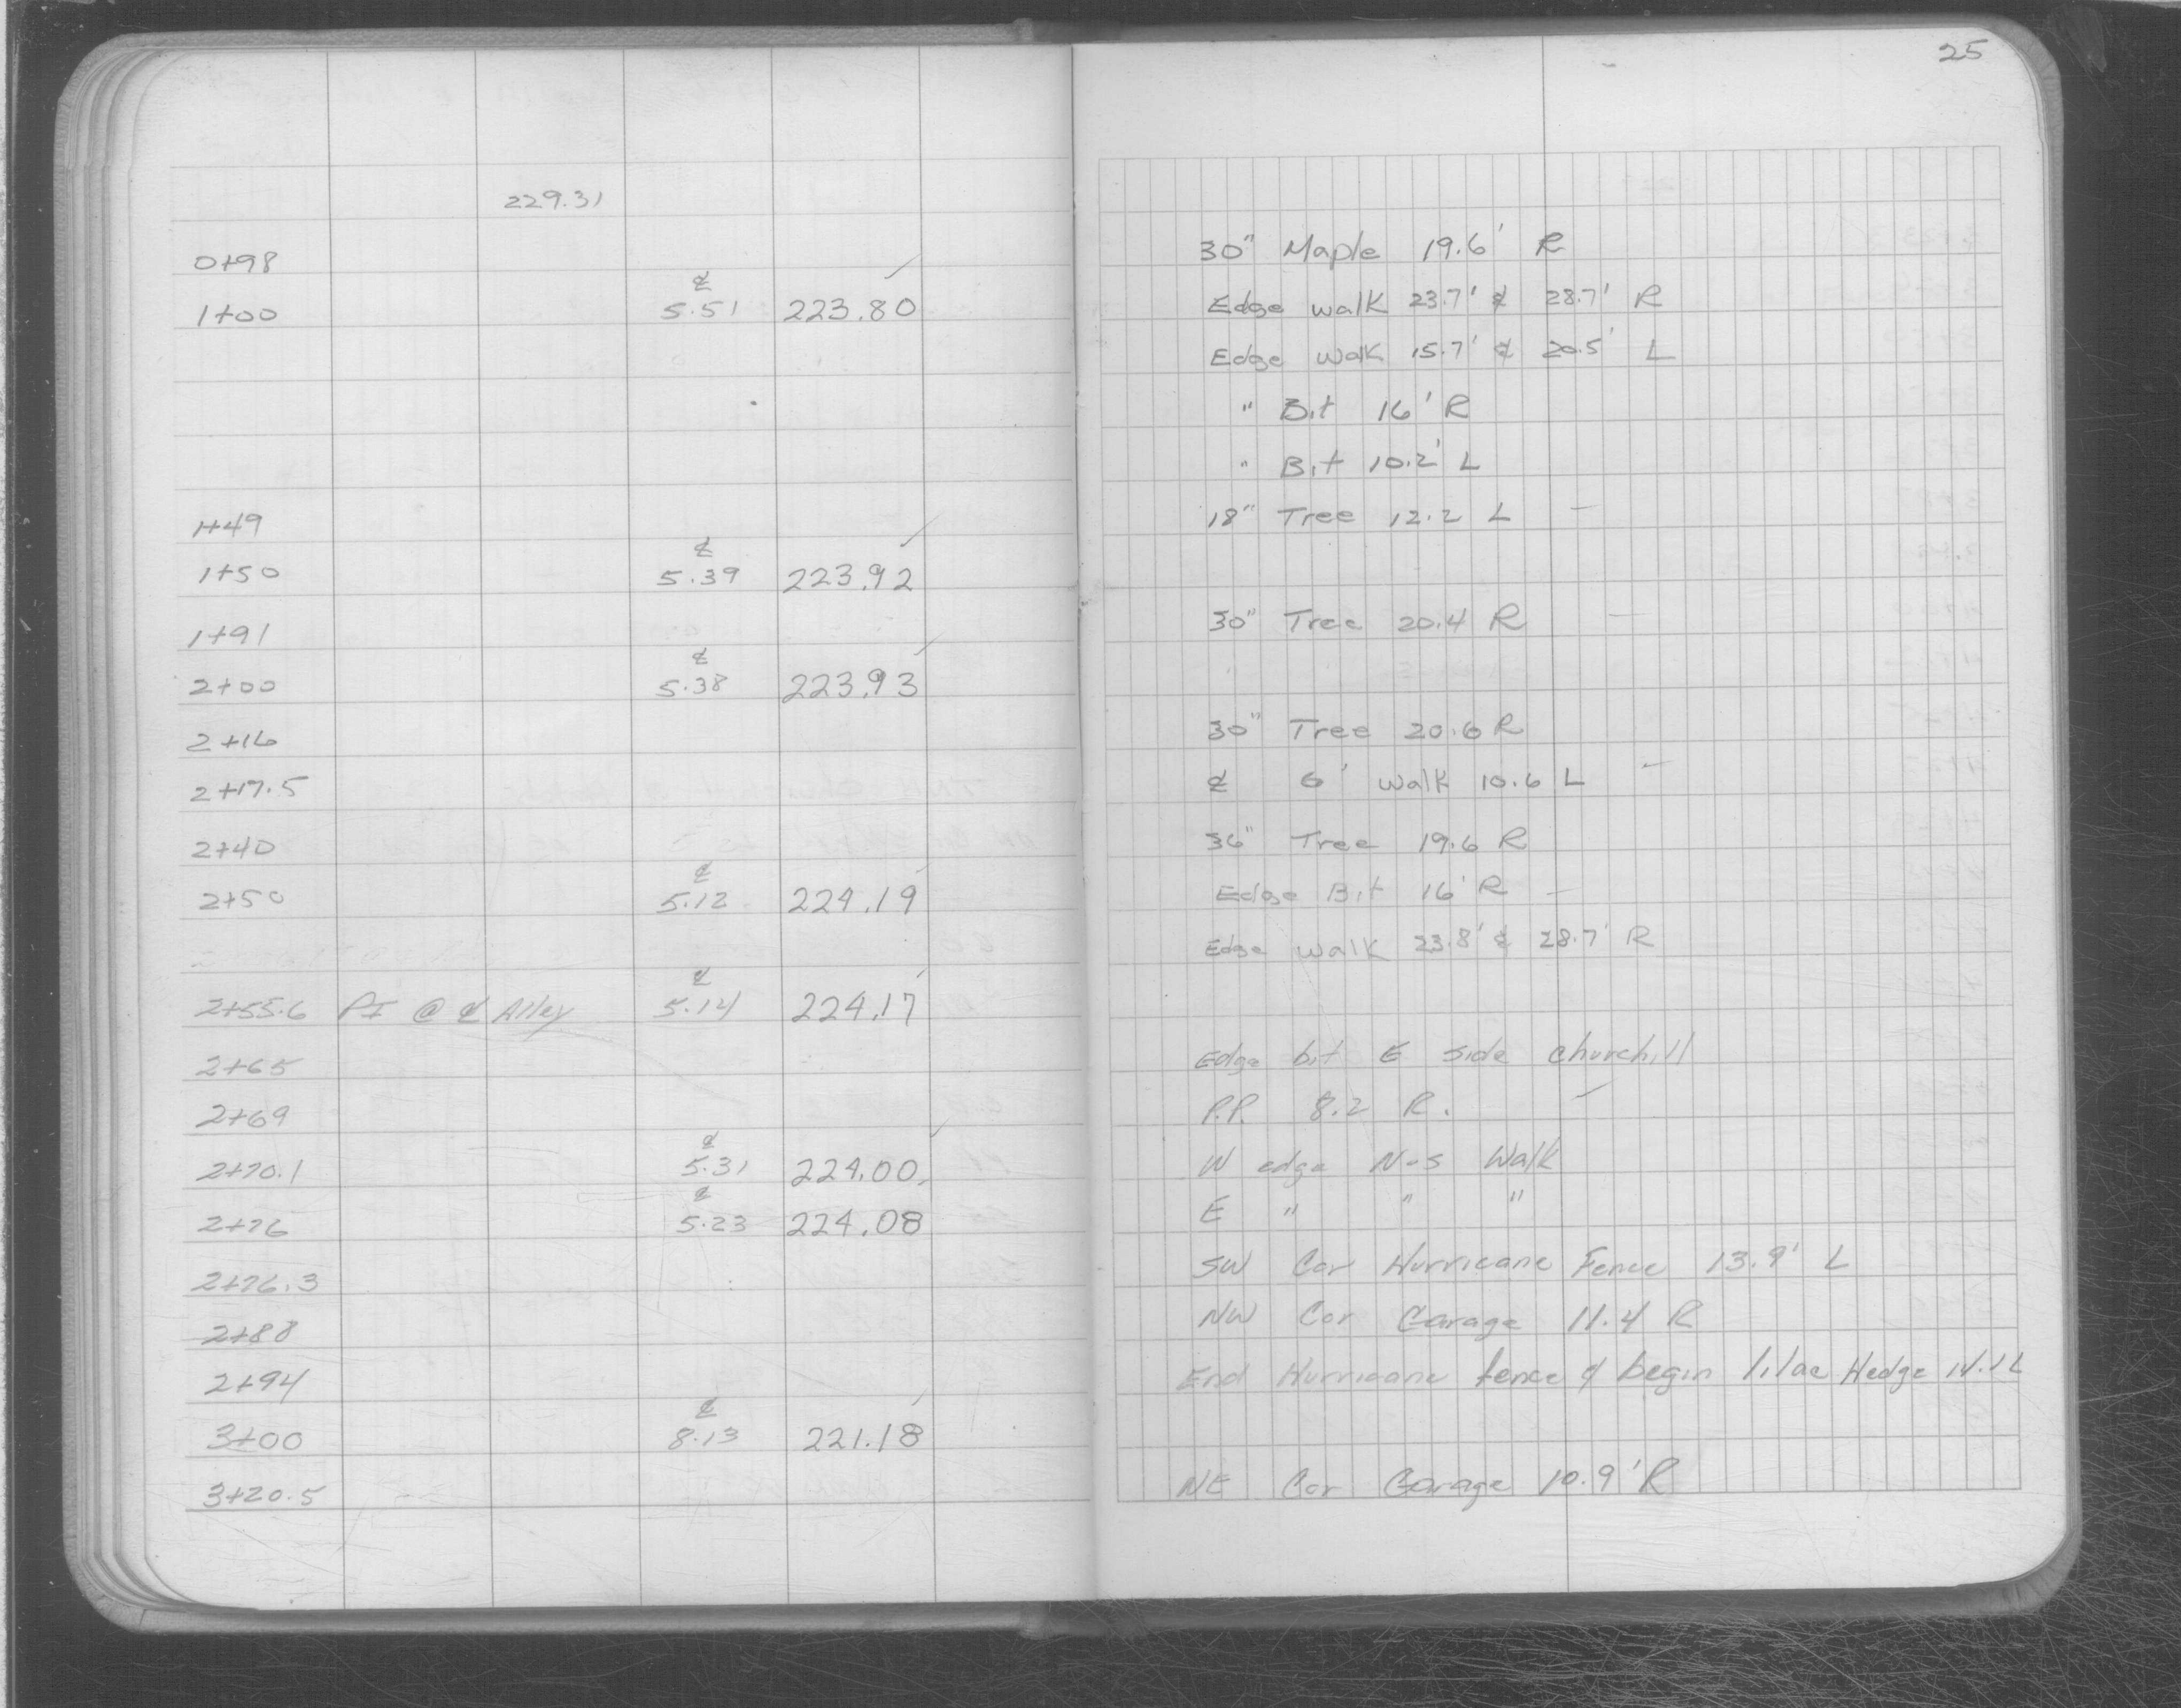 25
229.31
0+98 30" Maple 19.6' R
℄
1+00 5.51 223.80 Edge walk 23.7' & 28.7' R
Edge walk 15.7' & 20.5' L
" Bit 16' R
" Bit 10.2' L
1+49 18" Tree 12.2 L –
℄
1+50 5.39 223.92
1+91 30" Tree 20.4 R –
℄
2+00 5.38 223.93
2+16 30" Tree 20.6 R
2+17.5 ℄ 6' walk 10.6 L –
2+40 36" Tree 19.6 R
℄
2+50 5.12 224.19 Edge Bit 16' R –
Edge walk 23.8' & 28.7' R
℄
2+55.6 PI @ ℄ Alley 5.14 224.17
2+65 Edge bit E side churchill
2+69 P.P. 8.2 R. –
℄
2+70.1 5.31 224.00 W edge N-S Walk
℄
2+76 5.23 224.08 E " " "
2+76.3 SW Cor Hurricane Fence 13.9' L
2+88 NW Cor Garage 11.4 R
2+94 End Hurricane fence & begin lilac Hedge 14.1 L
℄
3+00 8.13 221.18
3+20.5 NE Cor Garage 10.9' R